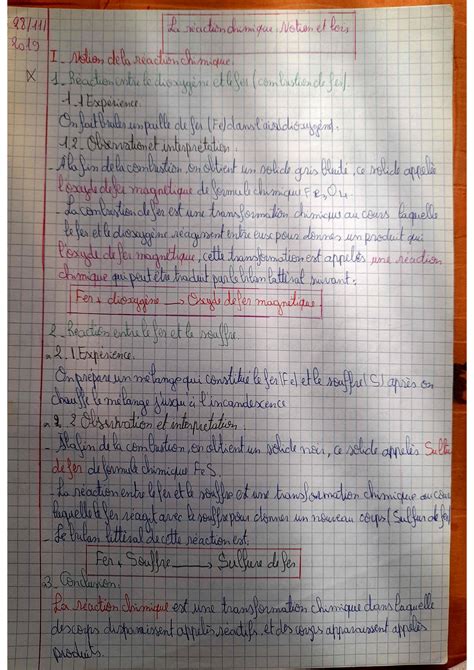 28/11/
2019
La réaction chimique : Notion et lois
I - Notion de la réaction chimique.
X
1 - Réaction entre le dioxygène et le fer (combustion de fer).
1.1 Expérience.
On fait brûler un paille de fer (Fe) dans l'air (dioxygène).
1.2 - Observation et interprétation.
- A la fin de la combustion, on obtient un solide gris bleuté, ce solide appelée
l'oxyde de fer magnétique de formule chimique Fe3O4.
- La combustion de fer est une transformation chimique au cours laquelle
le fer et le dioxygène réagissent entre eux pour donner un produit qui
l'oxyde de fer magnétique, cette transformation est appelée une réaction
chimique qui peut être traduit par le bilan littéral suivant :
Fer + dioxygène → Oxyde de fer magnétique
2 - Réaction entre le fer et le souffre.
2.1 Expérience.
On prépare un mélange qui constitué le fer (Fe) et le souffre (S) après on
chauffe le mélange jusqu'à l'incandescence
2.2 Observation et interprétation.
- A la fin de la combustion, on obtient un solide noir, ce solide appelés Sulfu
de fer de formule chimique FeS.
- La réaction entre le fer et le souffre est une transformation chimique au cour
laquelle le fer réagit avec le souffre pour donner un nouveau corps (Sulfure de fer)
- Le bilan littéral du cette réaction est :
Fer + Souffre → Sulfure de fer
3 - Conclusion.
La réaction chimique est une transformation chimique dans laquelle
des corps disparaissent appelés réactifs, et des corps apparaissent appelés
produits.